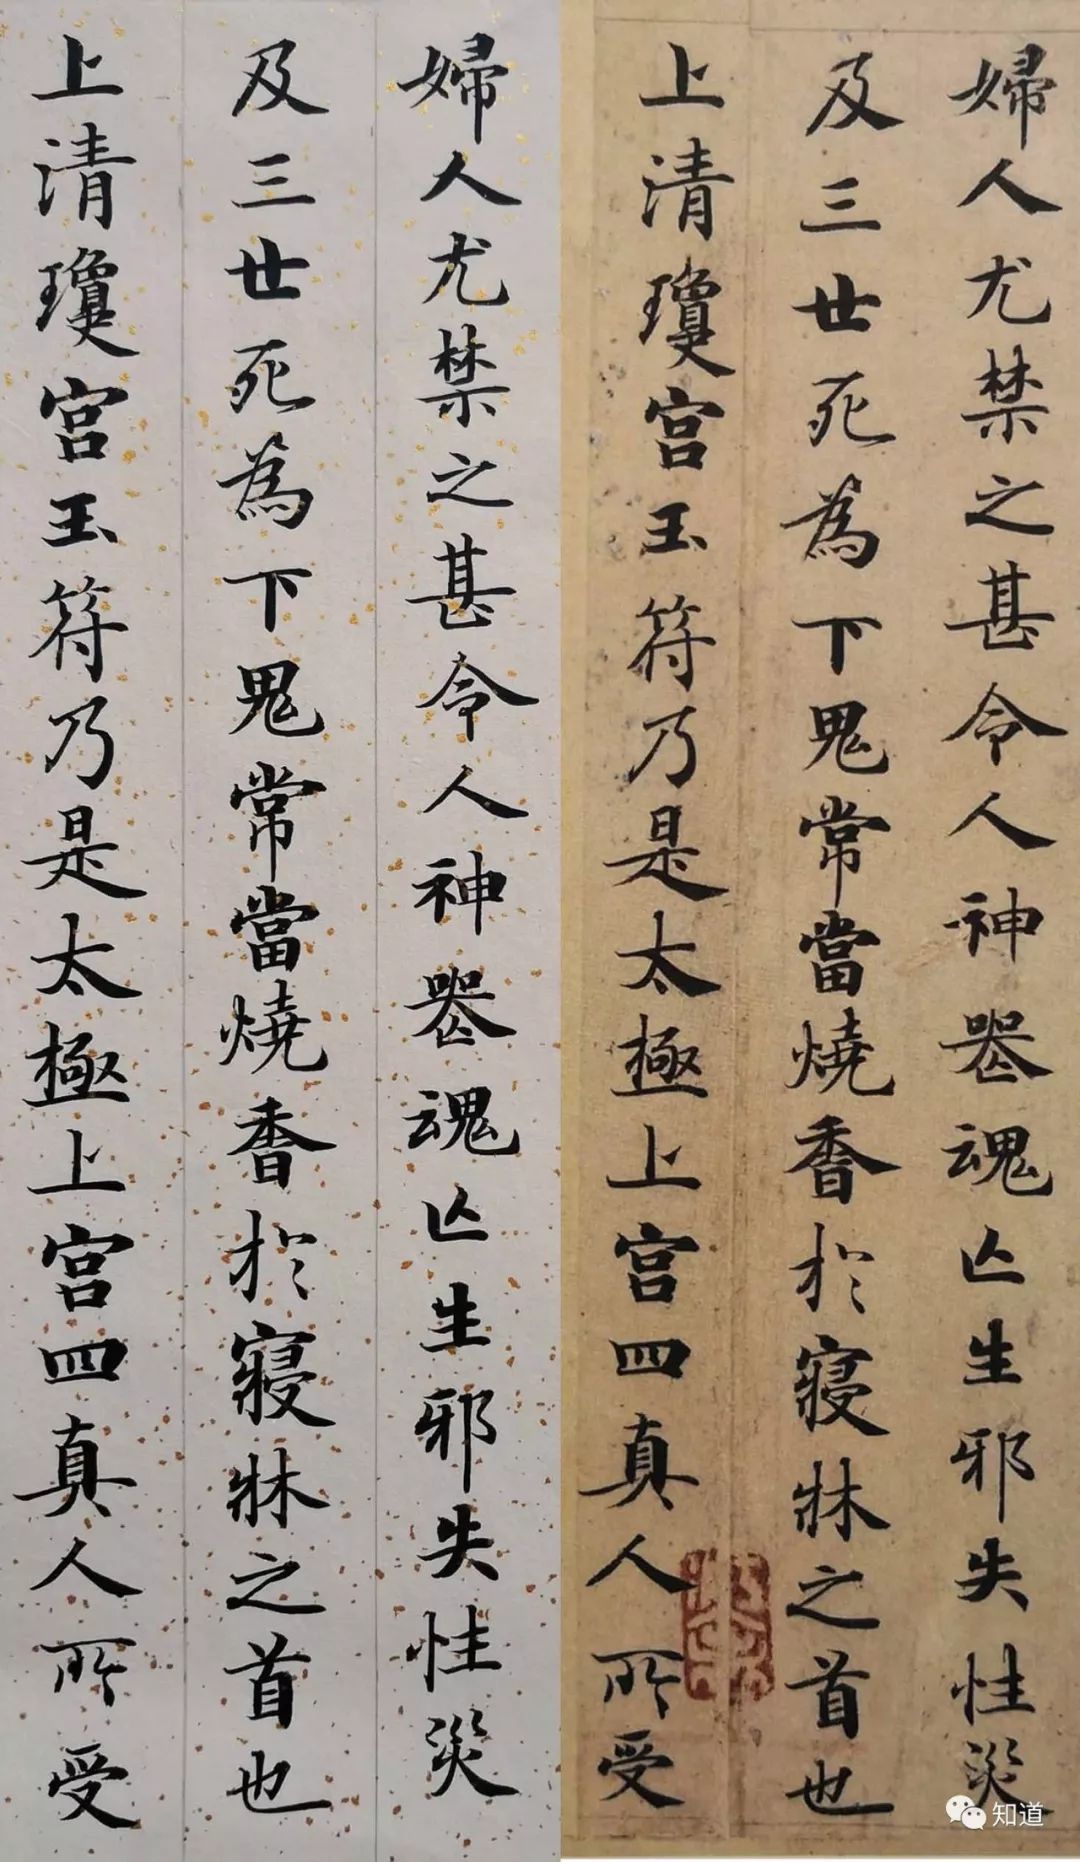 婦人尤禁之甚令人神喪魂亡生邪失性災
及三世死為下鬼常當燒香於寢牀之首也
上清瓊宮玉符乃是太極上宮四真人所受
婦人尤禁之甚令人神喪魂亡生邪失性災
及三世死為下鬼常當燒香於寢牀之首也
上清瓊宮玉符乃是太極上宮四真人所受
知道